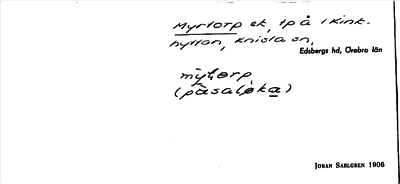 Myrtorp ek, tp å Kink-
hyttan, Knista sn,
Edsbergs hd, Örebro län
my̆torp
(på saloka)
JOHAN SAHLGREN 1906